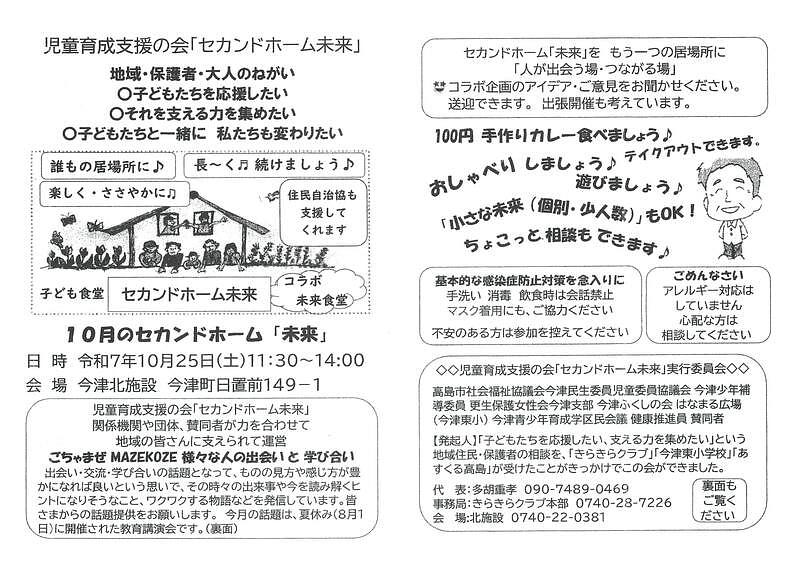 児童育成支援の会「セカンドホーム未来」
地域・保護者・大人のねがい
〇子どもたちを応援したい
〇それを支える力を集めたい
〇子どもたちと一緒に 私たちも変わりたい
誰もの居場所に♪
長～く♬続けましょう♪
楽しく・ささやかに♫
住民自治協も
支援して
くれます
子ども食堂
セカンドホーム未来
コラボ
未来食堂
10月のセカンドホーム「未来」
日 時 令和7年10月25日(土)11:30～14:00
会 場 今津北施設 今津町日置前149－1
児童育成支援の会「セカンドホーム未来」
関係機関や団体、賛同者が力を合わせて
地域の皆さんに支えられて運営
ごちゃまぜ MAZEKOZE 様々な人の出会い と 学び合い
出会い・交流・学び合いの話題となって、ものの見方や感じ方が豊
かになれば良いという思いで、その時々の出来事や今を読み解くヒ
ントになりそうなこと、ワクワクする物語などを発信しています。皆
さまからの話題提供をお願いします。 今月の話題は、夏休み(8月1
日)に開催された教育講演会です。(裏面)
セカンドホーム「未来」を もう一つの居場所に
「人が出会う場・つながる場」
コラボ企画のアイデア・ご意見をお聞かせください。
送迎できます。 出張開催も考えています。
100円 手作りカレー食べましょう♪
テイクアウトできます。
おしゃべり しましょう♪
遊びましょう♪
「小さな未来（個別・少人数）」もOK！
ちょこっと 相談も できます♪
基本的な感染症防止対策を念入りに
手洗い 消毒 飲食時は会話禁止
マスク着用にも、ご協力ください
不安のある方は参加を控えてください
ごめんなさい
アレルギー対応は
していません
心配な方は
相談してください
◇◇児童育成支援の会「セカンドホーム未来」実行委員会◇◇
高島市社会福祉協議会今津民生委員児童委員協議会 今津少年補
導委員 更生保護女性会今津支部 今津ふくしの会 はなまる広場
(今津東小) 今津青少年育成学区民会議 健康推進員 賛同者
【発起人】「子どもたちを応援したい、支える力を集めたい」という
地域住民・保護者の相談を、「きらきらクラブ」「今津東小学校」「あ
すくる高島」が受けたことがきっかけでこの会ができました。
代 表:多胡重孝 090-7489-0469
事務局:きらきらクラブ本部 0740-28-7226
会 場:北施設 0740-22-0381
裏面も
ご覧く
ださい